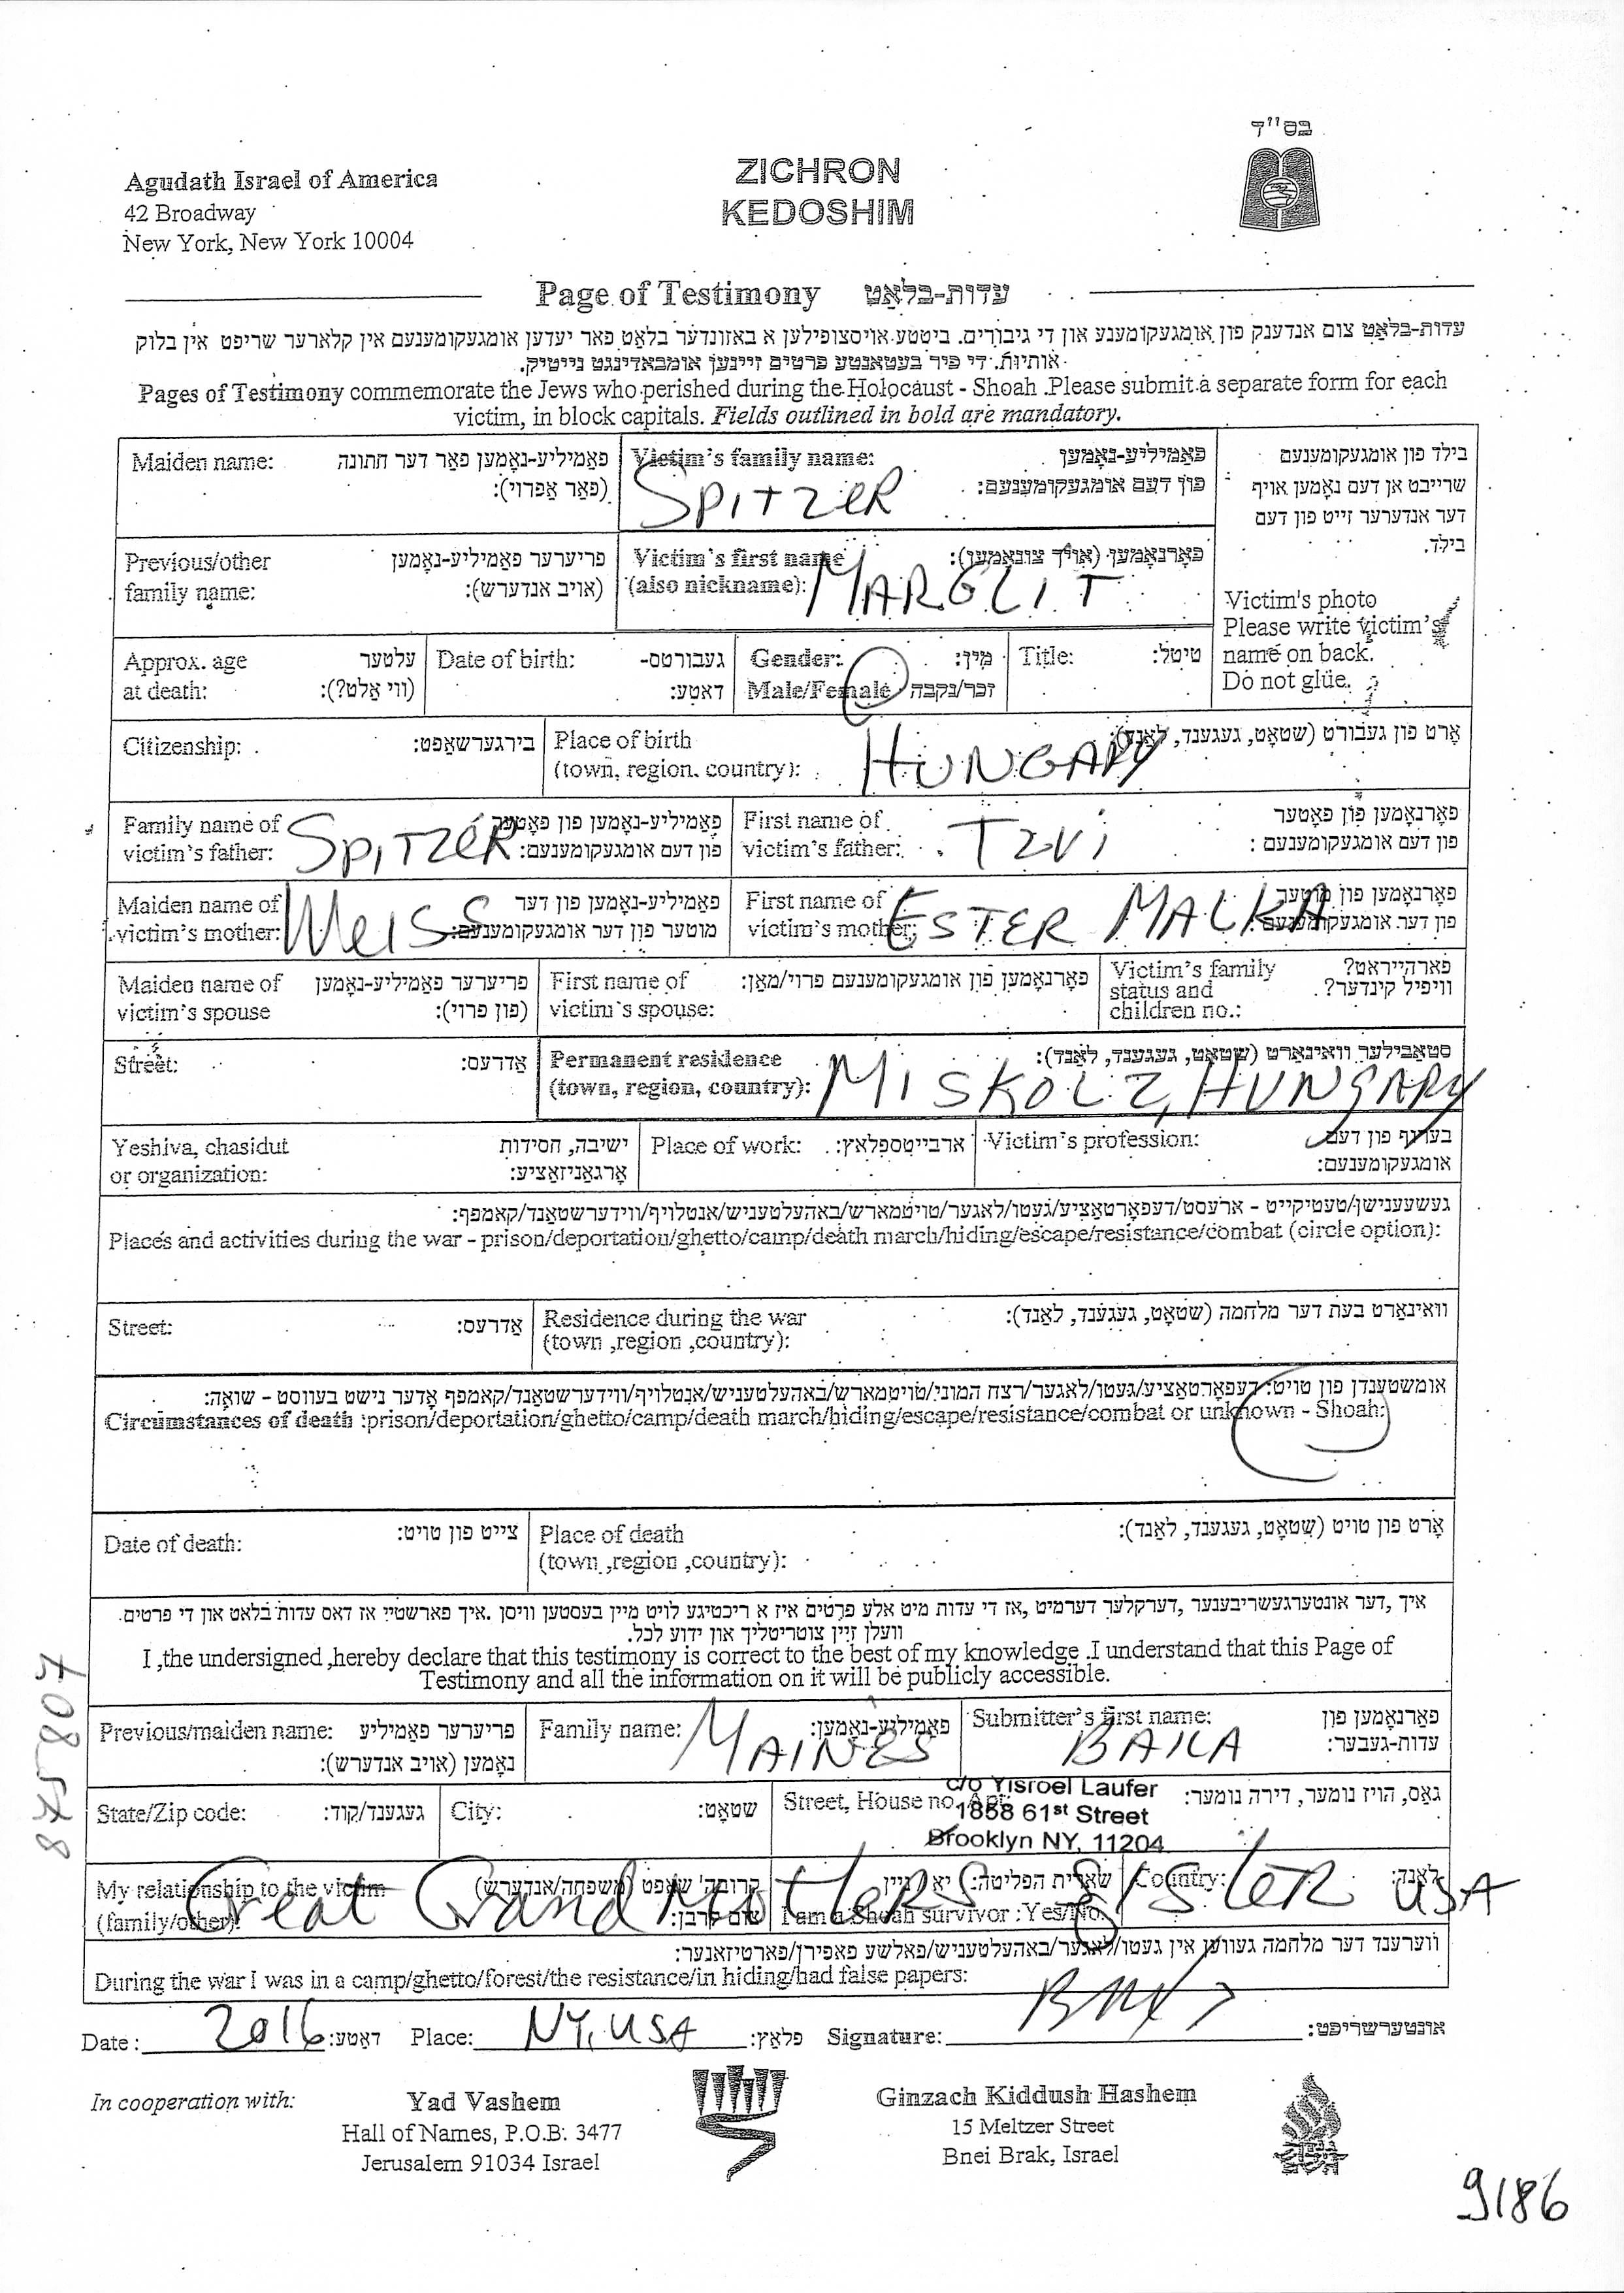 בס"ד
Agudath Israel of America
42 Broadway
New York, New York 10004
ZICHRON
KEDOSHIM
Page of Testimony עדות-בלאַט
עדות-בלאַט צום אנדענק פון אומגעקומענע און די גיבורים. ביטטע אויסצופילען א באזונדער בלאַט פאר יעדען אומגעקומענעם אין קלארער שריפט אין בלוק
אותיות. די פיר בעטאנטע פרטים זיינען אומבאדינגט נייטיק.
Pages of Testimony commemorate the Jews who perished during the Holocaust - Shoah .Please submit a separate form for each
victim, in block capitals. Fields outlined in bold are mandatory.
Maiden name: פאַמיליע-נאָמען פאר דער חתונה
(פאר אפרוי):
Victim's family name: פאַמיליע-נאָמען
פון דעם אומגעקומענעם:
SPITZER
בילד פון אומגעקומענעם
שרייבט אן דעם נאָמען אויף
דער אנדערער זייט פון דעם
בילד.
Previous/other פריערער פאַמיליע-נאָמען
family name: (אויב אנדערש):
Victim's first name פאָרנאָמען (אויך צונאָמען):
(also nickname): MARGLIT
Victim's photo
Please write victim's
name on back.
Do not glue.
Approx. age עלטער
at death: (ווי אַלט?):
Date of birth: געבורטס-
דאַטע:
Gender: מין:
Male/Female זכר/נקבה
Title: טיטל:
Citizenship: בירגערשאַפט:
Place of birth אָרט פון געבורט (שטאָט, געגענד, לאַנד):
(town, region. country): HUNGARY
Family name of פאַמיליע-נאָמען פון פאָטער
victim's father: SPITZER פון דעם אומגעקומענעם:
First name of פאָרנאָמען פון פאָטער
victim's father: Tzvi פון דעם אומגעקומענעם:
Maiden name of פאַמיליע-נאָמען פון דער
victim's mother: WeiSS מוטער פון דער אומגעקומענעם:
First name of פאָרנאָמען פון מוטער
victim's mother: ESTER MALKA פון דער אומגעקומענעם:
Maiden name of פריערער פאַמיליע-נאָמען
victim's spouse (פון פרוי):
First name of פאָרנאָמען פון אומגעקומענעם פרוי/מאַן:
victim's spouse:
Victim's family פארהייראט?
status and וויפיל קינדער?
children no.:
Street: אַדרעס:
Permanent residence סטאַבילער וואוינאָרט (שטאָט, געגענד, לאַנד):
(town, region, country): MISKOLZ, HUNGARY
Yeshiva, chasidut ישיבה, חסידות
or organization: אָרגאַניזאַציע:
Place of work: ארבייטספּלאַץ:
Victim's profession: בערוף פון דעם
אומגעקומענעם:
געשעענישן/טעטיקייט - ארעסט/דעפּאָרטאַציע/געטו/לאַגער/טויטמארש/באַהעלטעניש/אנטלויף/ווידערשטאַנד/קאמפף:
Places and activities during the war - prison/deportation/ghetto/camp/death march/hiding/escape/resistance/combat (circle option):
Street: אַדרעס:
Residence during the war וואוינארט בעת דער מלחמה (שטאָט, געגענד, לאַנד):
(town ,region ,country):
אומשטענדן פון טויט: דעפּאָרטאַציע/געטו/לאגער/רצח המוני/טויטמארש/באַהעלטעניש/אנטלויף/ווידערשטאַנד/קאמפף אָדער נישט בעוואוסט - שואה:
Circumstances of death :prison/deportation/ghetto/camp/death march/hiding/escape/resistance/combat or unknown - Shoah:
Date of death: צייט פון טויט:
Place of death אָרט פון טויט (שטאָט, געגענד, לאַנד):
(town ,region ,country):
איך ,דער אונטערגעשריבענער ,דערקלער דערמיט ,אז די עדות מיט אלע פרטים איז א ריכטיגע לויט מיין בעסטען וויסן .איך פארשטיי אז דאס עדות בלאט און די פרטים
וועלן זיין צוטריטליך און ידוע לכל.
I ,the undersigned ,hereby declare that this testimony is correct to the best of my knowledge .I understand that this Page of
Testimony and all the information on it will be publicly accessible.
875807
Previous/maiden name: פריערער פאַמיליע
נאָמען (אויב אנדערש):
Family name: פאַמיליע-נאָמען:
MAINES
Submitter's first name: פאָרנאָמען פון
עדות-געבער:
State/Zip code: געגענד/קוד:
City: שטאָט:
Street, House no, Apt: גאַס, הויז נומער, דירה נומער:
c/o Yisroel Laufer
1858 61st Street
Brooklyn NY, 11204
My relationship to the victim
(family/other):
Great Grand MotHers SISteR
שארית הפליטה: יא / ניין
I am a Shoah survivor :Yes/No
Country: לאַנד:
USA
ווערענד דער מלחמה געווען אין געטו/לאַגער/באַהעלטעניש/פאלשע פאפירן/פארטיזאנער:
During the war I was in a camp/ghetto/forest/the resistance/in hiding/had false papers:
Date: 2016 דאַטע: Place: NY, USA פּלאַץ: Signature: אונטערשריפט:
In cooperation with:
Yad Vashem
Hall of Names, P.O.B. 3477
Jerusalem 91034 Israel
Ginzach Kiddush Hashem
15 Meltzer Street
Bnei Brak, Israel
9186